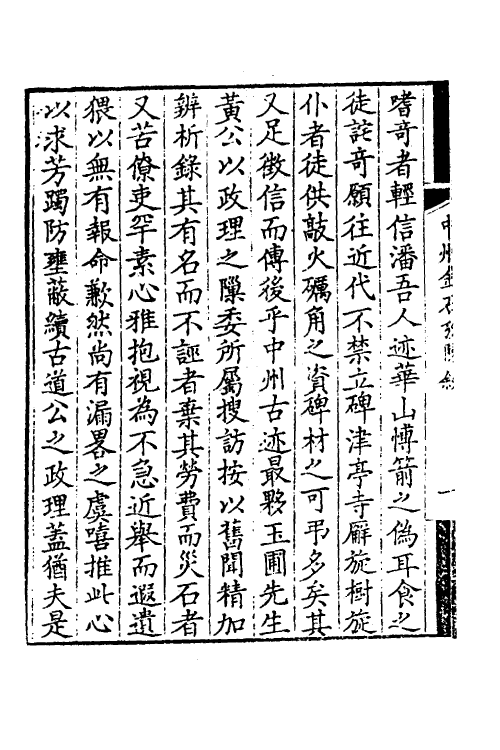 嗜奇者輕信潘吾人迹華山愽箭之偽耳食之
徒詫奇願往近代不禁立碑津亭寺廨旋樹旋
仆者徒供敲火礪角之資碑材之可弔多矣其
又足徵信而傳後乎中州古迹最夥玉圃先生
黃公以政理之隟委所屬搜訪按以舊聞精加
辨析錄其有名而不誣者棄其勞費而災石者
又苦僚吏罕素心雅抱視為不急近舉而遐遺
猥以無有報命歉然尚有漏畧之虞嘻推此心
以求芳躅防壅蔽績古道公之政理蓋猶夫是
中州金石攷 敘
一